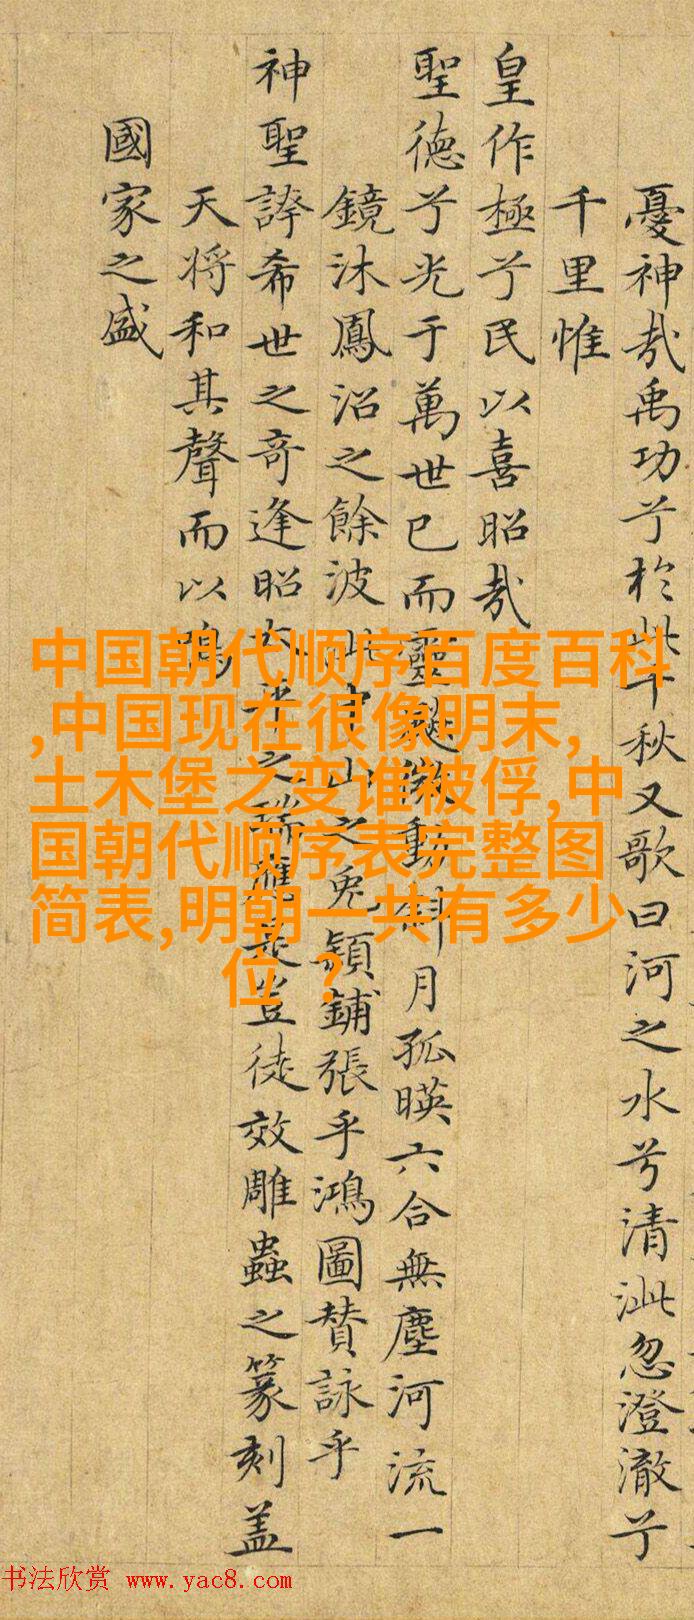 憂神哉禹功兮於此千秋又歌曰河之水兮清泚忽澄澈兮
千里惟
皇作極兮民以喜昭哉
聖德兮光于萬世已而靈
動
月孤暎六合無塵河流一
鏡沐鳳沼之餘波
山之兔穎鋪張乎鴻圖贊詠乎
神聖誇希世之奇逢昭太平之瑞應
豈徒效雕蟲之篆刻蓋
天將和其聲而以鳴
國家之盛
中国朝代顺序百度百科
,中国现在很像明末,
土木堡之变谁被俘,中
国朝代顺序表完整图
简表,明朝一共有多少
位？
书法欣赏 www.yac8.com